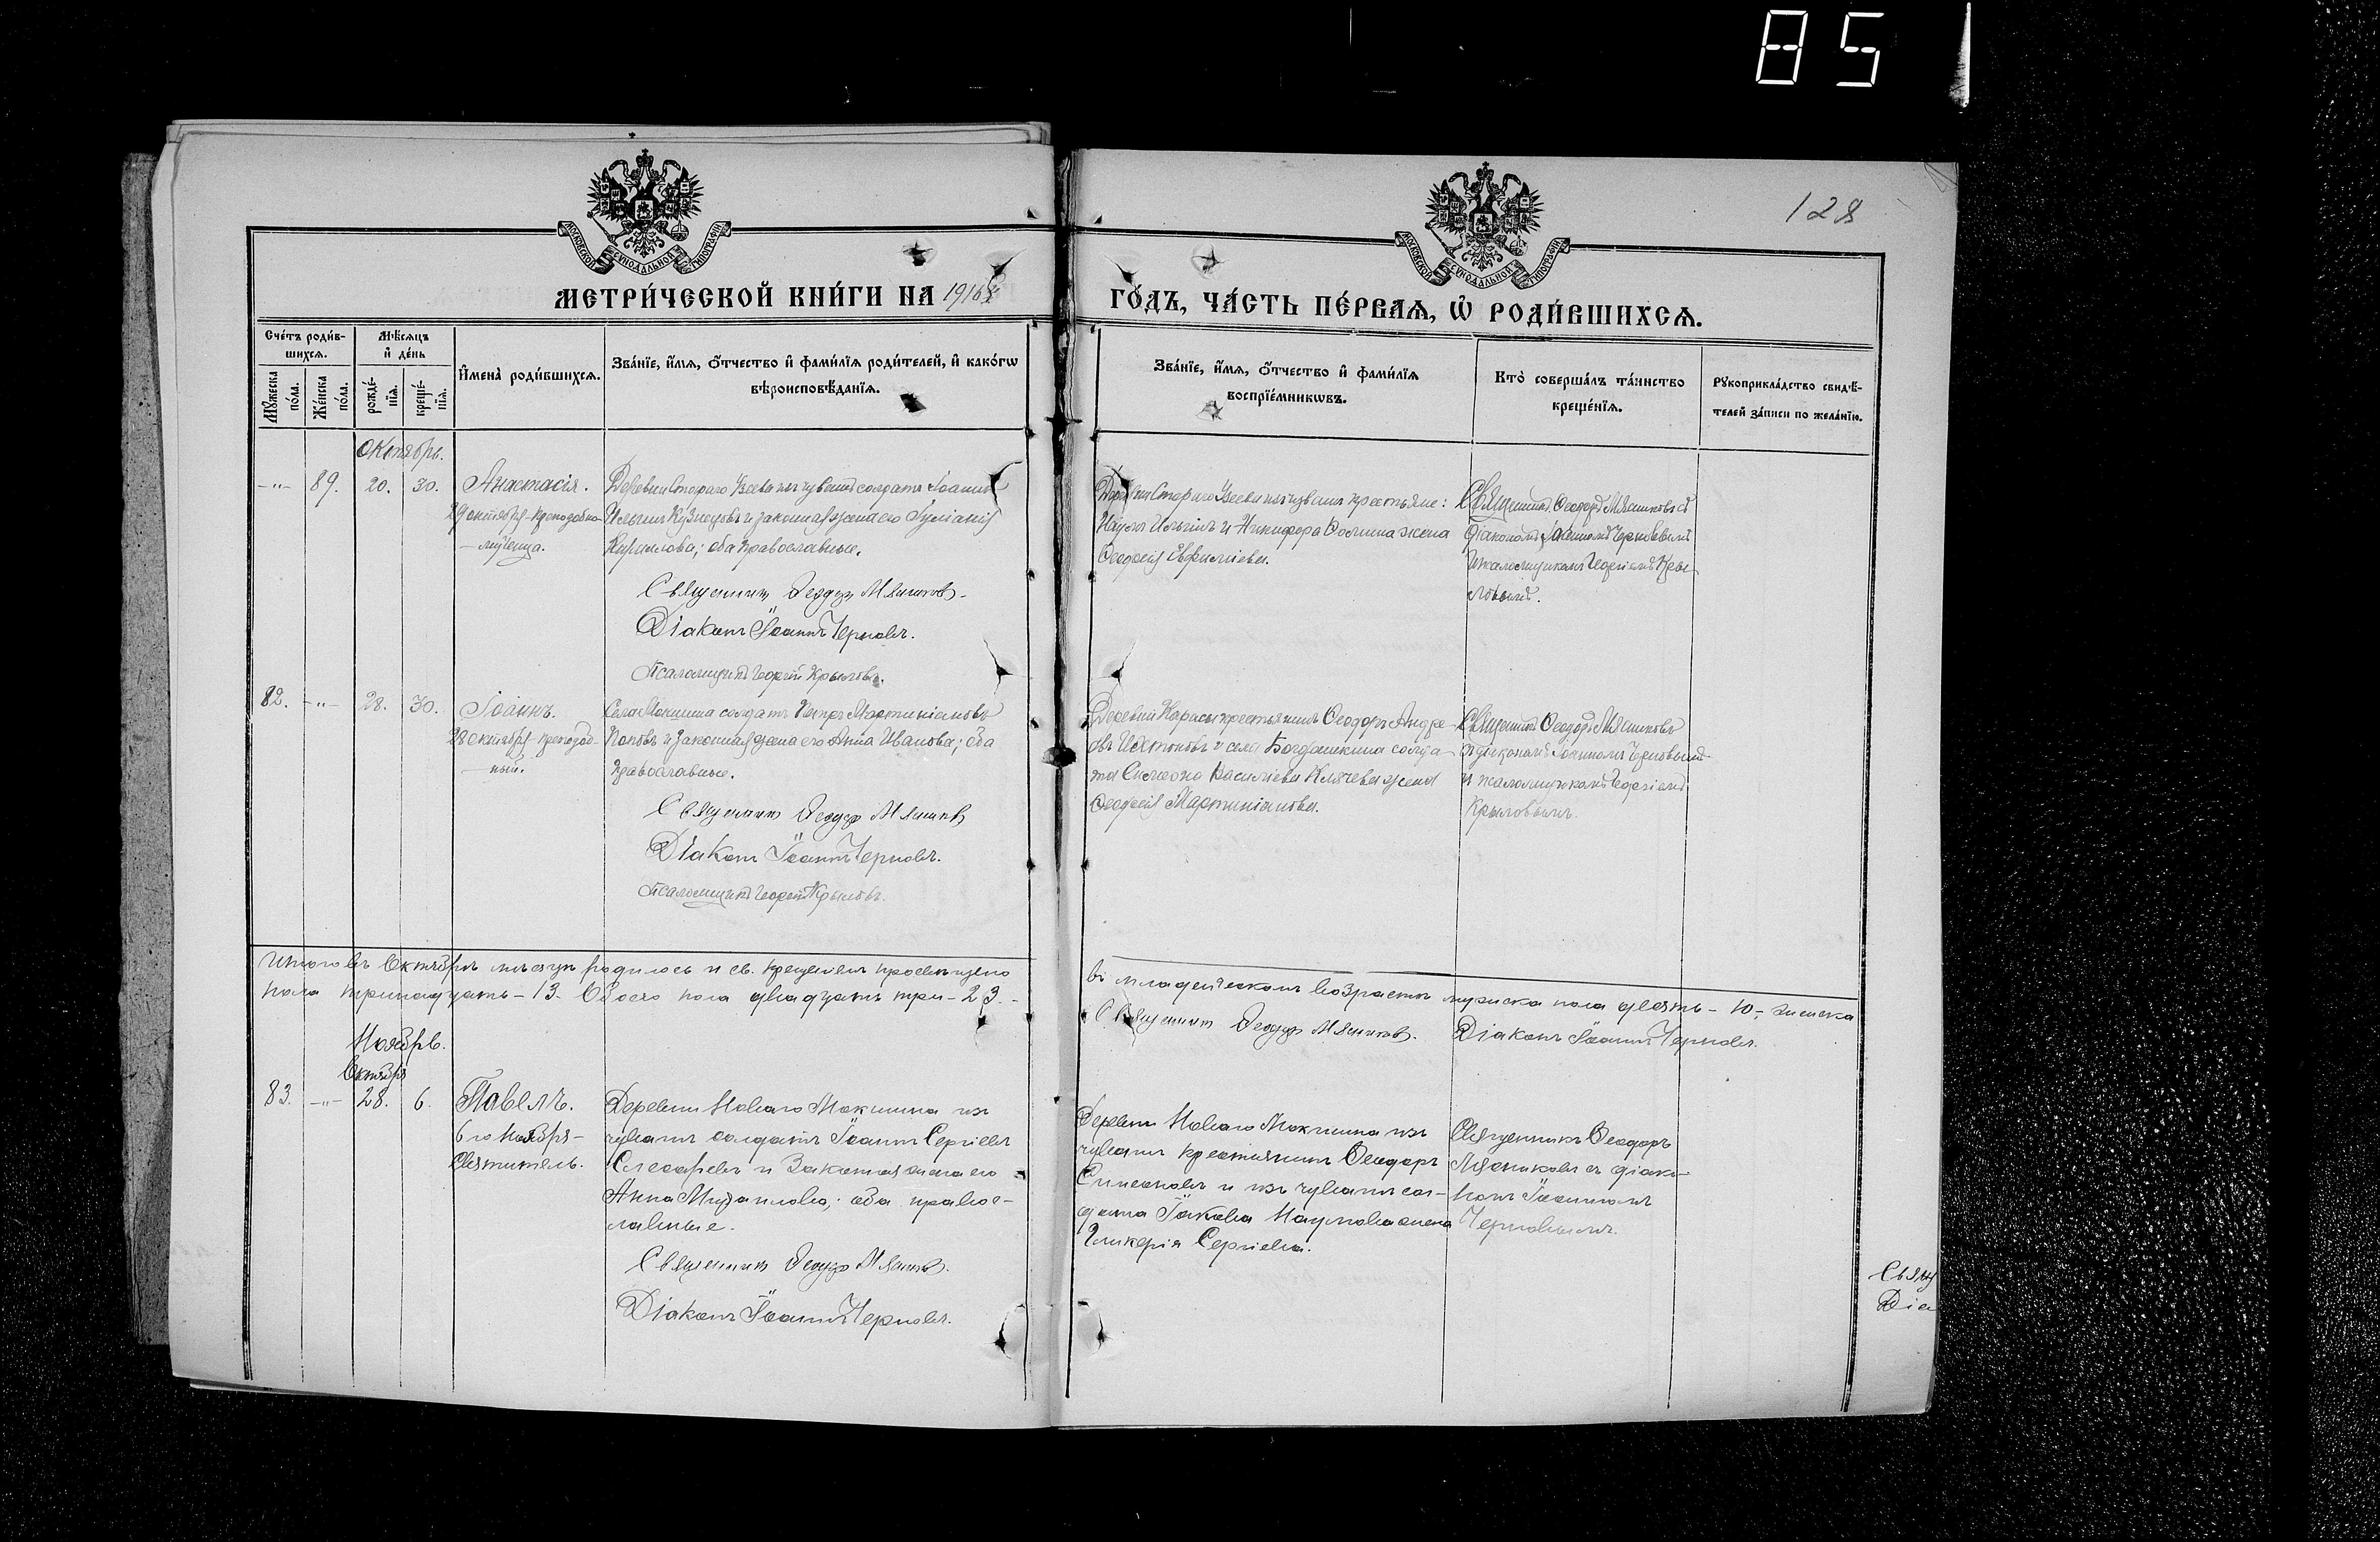 85
128
МОСКОВСКОЙ СѴНОДАЛЬНОЙ ТИПОГРАФІИ
МОСКОВСКОЙ СѴНОДАЛЬНОЙ ТИПОГРАФІИ
МЕТРИ́ЧЕСКОЙ КНИ́ГИ НА 1916
ГО́ДЪ, ЧА́СТЬ ПЕ́РВАѦ, Ѡ҆ РОДИ́ВШИХСѦ.
Сче́тъ роди́в-
шихсѧ.
Мꙋ́жеска по́ла.
Же́нска по́ла.
Мѣ́сѧцъ и҆ де́нь
рожде́-нїѧ.
креще́-нїѧ.
И҆мена̀ роди́вшихсѧ.
Зва́нїе, и҆́мѧ, ѻ҆́тчество и҆ фами́лїѧ роди́телей, и҆ како́гѡ
вѣроисповѣ́данїѧ.
Зва́нїе, и҆́мѧ, ѻ҆́тчество и҆ фами́лїѧ
воспрїе́мникѡвъ.
Кто̀ соверша́лъ та́инство
креще́нїѧ.
Рꙋкоприкла́дство свидѣ́-
телей за́писи по жела́нїю.
Октябрь.
-"- 89. 20. 30. Анастасія.
29 октября - преподобно-
мученица.
Деревни Стараго Узеева изъ чувашъ солдатъ Іоаннъ
Ильинъ Кузнецовъ и законная жена его Іуліанія
Кириллова; оба православные.
Священникъ Ѳеодоръ Мясниковъ.
Діаконъ Іоаннъ Черновъ.
Псаломщикъ Георгій Крыловъ.
Деревни Стараго Узеева изъ чувашъ крестьяне:
Наумъ Ильинъ и Никифора Ѳомина жена
Ѳеодосія Евфиміева.
Священникъ Ѳеодоръ Мясниковъ съ
діакономъ Іоанномъ Черновымъ
и псаломщикомъ Георгіемъ Кры-
ловымъ.
82. -"- 28. 30. Іоаннъ.
28 октября - преподоб-
ный.
Села Мокшина солдатъ Петръ Мартиніановъ
Поповъ и законная жена его Анна Иванова; оба
православные.
Священникъ Ѳеодоръ Мясниковъ
Діаконъ Іоаннъ Черновъ.
Псаломщикъ Георгій Крыловъ.
Деревни крестьянинъ Ѳеодоръ Андре-
евъ и села Богдашкина солда-
та Симеона Василіева жена
Мартиніанова.
Священникъ Ѳеодоръ Мясниковъ
съ діакономъ Іоанномъ Черновымъ
и псаломщикомъ Георгіемъ
Крыловымъ.
Итого въ Октябрѣ мѣсяцѣ родилось и св. крещеніемъ просвѣщено
въ младенческомъ возрастѣ мужска пола десять - 10, женска
пола тринадцать - 13. Обоего пола двадцать три - 23. -
Священникъ Ѳеодоръ Мясниковъ. Діаконъ Іоаннъ Черновъ.
Ноябрь.
Октября
83. -"- 28. 6. Павелъ.
6го Ноября -
Святитель.
Деревни Новаго Мокшина изъ
чувашъ солдатъ Іоаннъ Сергіевъ
Слесаревъ и законная жена его
Анна Михаилова; оба правос-
лавные.
Священникъ Ѳеодоръ Мясниковъ.
Діаконъ Іоаннъ Черновъ.
Деревни Новаго Мокшина изъ
чувашъ крестьянинъ Ѳеодоръ
Симеоновъ и изъ чувашъ сол-
дата Іакова Наумова жена
Гликерія Сергіева.
Священникъ Ѳеодоръ
Мясниковъ съ діако-
номъ Іоанномъ
Черновымъ.
Свящ
Діа